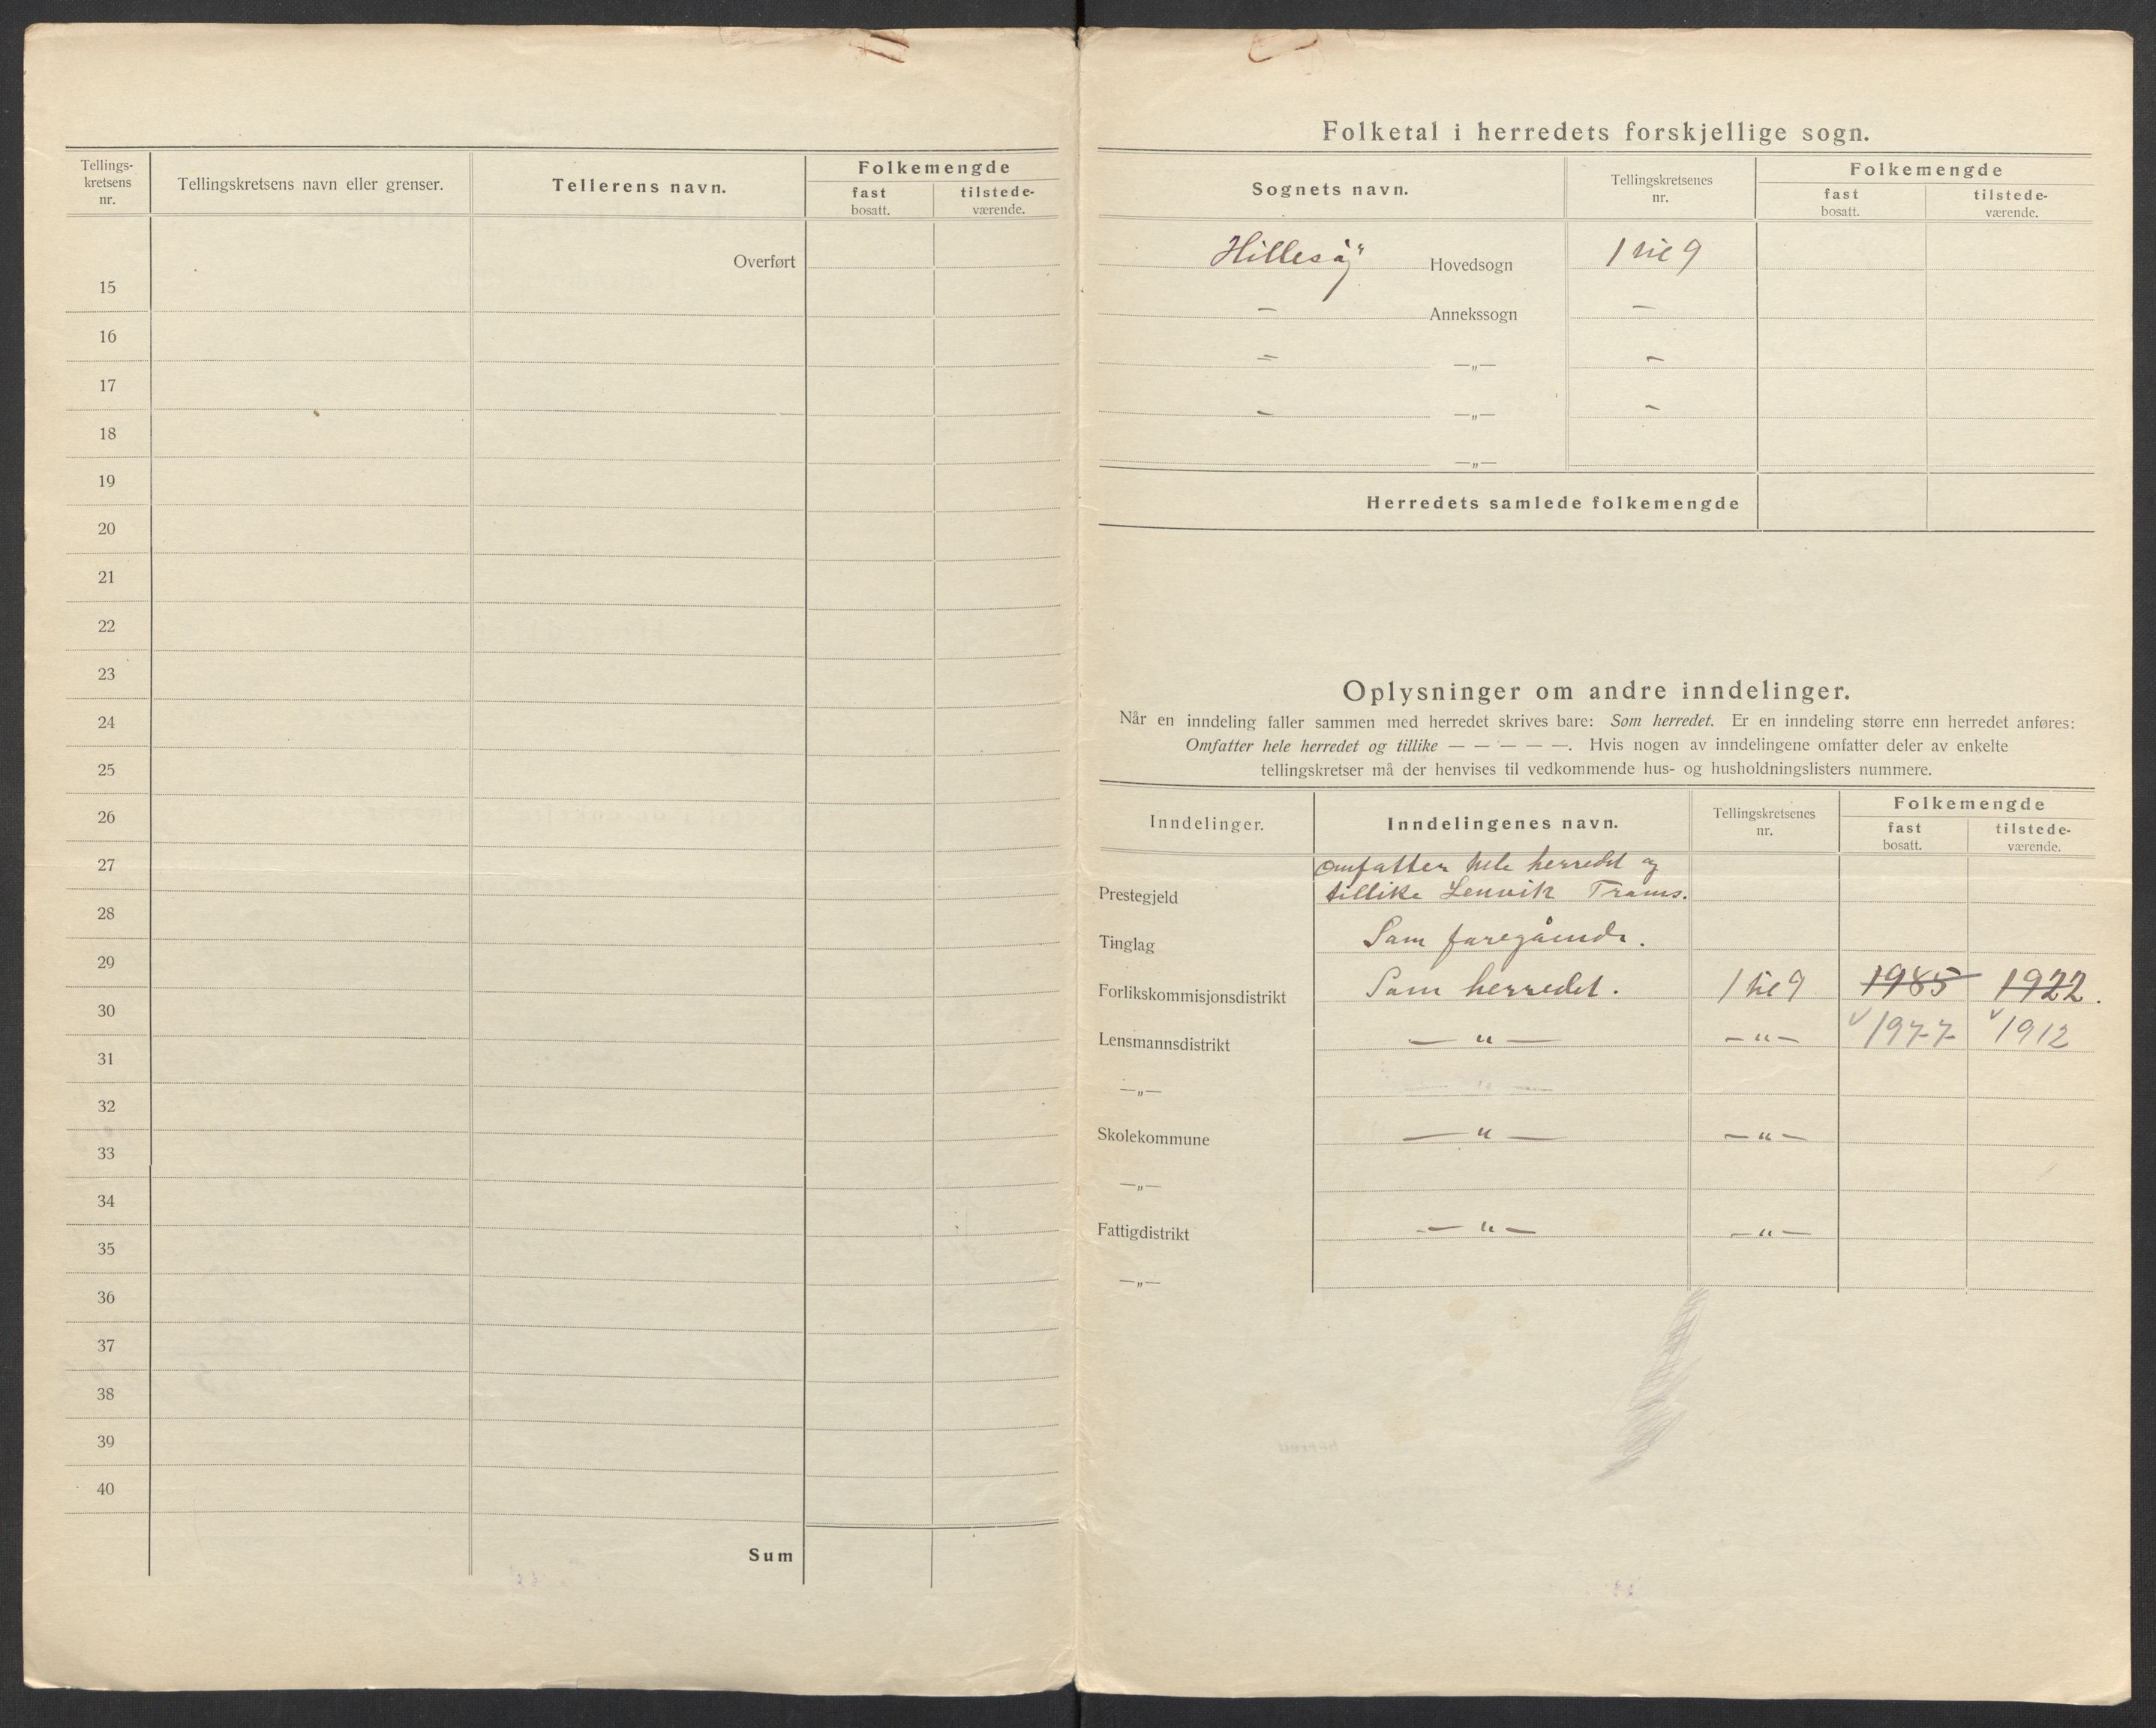 Tellings-
kretsens
nr.
Tellingskretsens navn eller grenser.
Tellerens navn.
Folkemengde
fast
bosatt.
tilstede-
værende.
Overført
15
16
17
18
19
20
21
22
23
24
25
26
27
28
29
30
31
32
33
34
35
36
37
38
39
40
Sum
Folketal i herredets forskjellige sogn.
Sognets navn.
Tellingskretsenes
nr.
Folkemengde
fast
bosatt.
tilstede-
værende.
Hillesøy Hovedsogn 1 til 9
— Annekssogn —
— —„— —
— —„— —
—„—
Herredets samlede folkemengde
Oplysninger om andre inndelinger.
Når en inndeling faller sammen med herredet skrives bare: Som herredet. Er en inndeling større enn herredet anføres:
Omfatter hele herredet og tillike — — — — —. Hvis nogen av inndelingene omfatter deler av enkelte
tellingskretser må der henvises til vedkommende hus- og husholdningslisters nummere.
Inndelinger.
Inndelingenes navn.
Tellingskretsenes
nr.
Folkemengde
fast
bosatt.
tilstede-
værende.
Omfatter hele herredet og
Prestegjeld tillike Lenvik Troms.
Tinglag Som foregående.
Forlikskommisjonsdistrikt Som herredet. 1 til 9 1985 1922.
Lensmannsdistrikt — „ — — „ — 1977 1912
—„—
Skolekommune — „ — — „ —
—„—
Fattigdistrikt — „ — — „ —
—„—